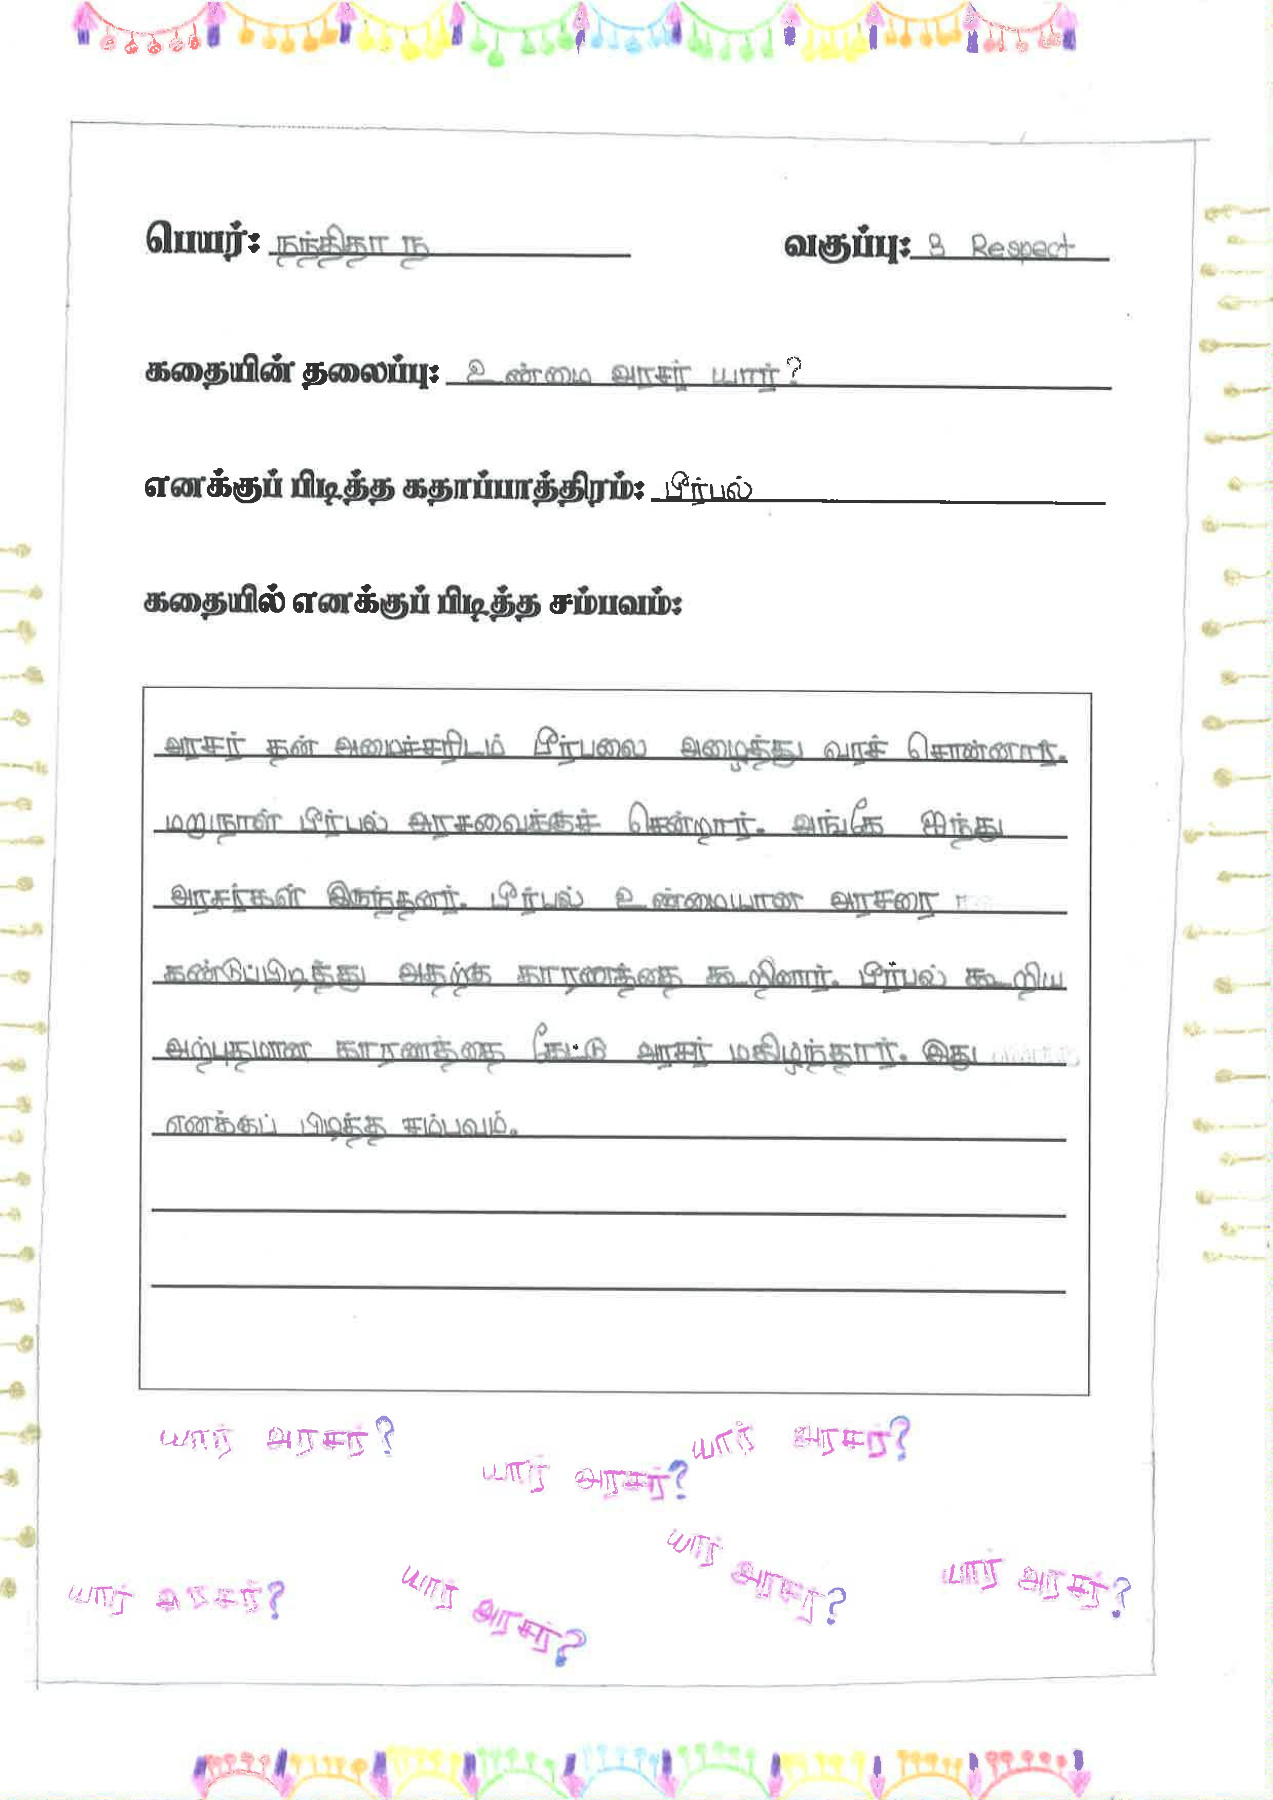 பெயர்: நந்திதா ந வகுப்பு: 3 Respect
கதையின் தலைப்பு: உண்மை அரசர் யார்?
எனக்குப் பிடித்த கதாப்பாத்திரம்: பீர்பல்
கதையில் எனக்குப் பிடித்த சம்பவம்:
அரசர் தன் அமைச்சரிடம் பீர்பலை அழைத்து வரச் சொன்னார்.
மறுநாள் பீர்பல் அரசவைக்குச் சென்றார். அங்கே ஐந்து
அரசர்கள் இருந்தனர். பீர்பல் உண்மையான அரசரை
கண்டுப்பிடித்து அதற்கு காரணத்தை கூறினார். பீர்பல் கூறிய
அற்புதமான காரணத்தை கேட்டு அரசர் மகிழ்ந்தார். இது
எனக்குப் பிடித்த சம்பவம்.
யார் அரசர்? யார் அரசர்?
யார் அரசர்?
யார் அரசர்? யார் அரசர்?
யார் அரசர்? யார் அரசர்?